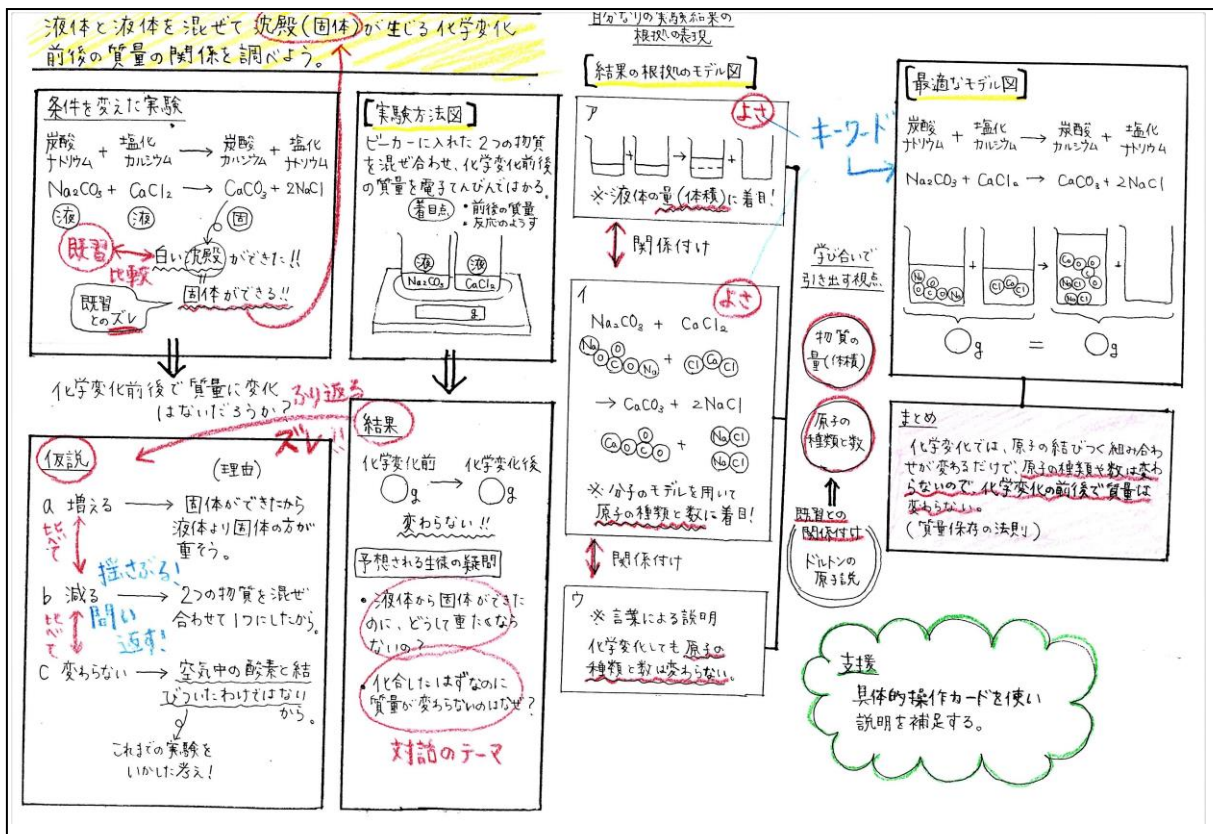 液体と液体を混ぜて沈殿(固体)が生じる化学変化
前後の質量の関係を調べよう。
条件を変えた実験
炭酸ナトリウム + 塩化カルシウム → 炭酸カルシウム + 塩化ナトリウム
Na₂CO₃ + CaCl₂ → CaCO₃ + 2NaCl
液 液 固
既習
比較
白い沈殿ができた!!
固体ができる!!
既習
とのズレ
化学変化前後で質量に変化
はないだろうか?
ふり返る
ズレ!!
仮説
(理由)
a 増える → 固体ができたから
液体より固体の方が
重そう。
比べて
揺さぶる!
b 減る → 2つの物質を混ぜ
合わせて1つにしたから。
比べて
問い
返す!
C 変わらない → 空気中の酸素と結
びついたわけではない
から。
これまでの実験を
いかした考え!
[実験方法図]
ビーカーに入れた2つの物質
を混ぜ合わせ、化学変化前後
の質量を電子てんびんではかる。
着目点
・前後の質量
・反応のようす
液 液
Na₂CO₃ CaCl₂
g
結果
化学変化前 → 化学変化後
○g → ○g
変わらない!!
予想される生徒の疑問
・液体から固体ができた
のに、どうして重たくなら
ないの?
・化合したはずなのに
質量が変わらないのはなぜ?
対話のテーマ
自分なりの実験結果の
根拠の表現
[結果の根拠のモデル図]
よさ
ア
+ → +
※液体の量(体積)に着目!
関係付け
よさ
イ
Na₂CO₃ + CaCl₂
Na O C O O Na Cl Ca Cl
→ CaCO₃ + 2NaCl
Ca O C O O + Na Cl
Na Cl
※分子のモデルを用いて
原子の種類と数に着目!
関係付け
ウ
※言葉による説明
化学変化しても原子の
種類と数は変わらない。
キーワード
学び合いで
引き出す視点
物質の
量(体積)
原子の
種類と数
既習との
関係付け
ドルトンの
原子説
[最適なモデル図]
炭酸ナトリウム + 塩化カルシウム → 炭酸カルシウム + 塩化ナトリウム
Na₂CO₃ + CaCl₂ → CaCO₃ + 2NaCl
+ → +
○g = ○g
まとめ
化学変化では、原子の結びつく組み合わ
せが変わるだけで、原子の種類や数は変わ
らないので、化学変化の前後で質量は
変わらない。
(質量保存の法則)
支援
具体的操作カードを使い
説明を補足する。